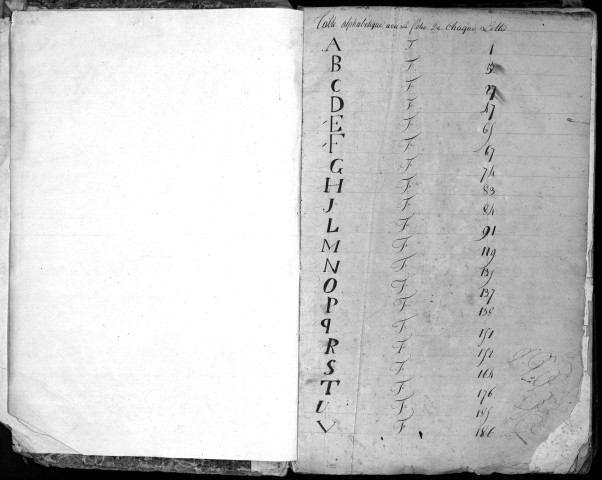 Table alphabétique avec le folio De chaque Lettre
A F 1
B F 5
C F 27
D F 47
E F 65
F F 67
G F 74
H F 83
J F 84
L F 91
M F 119
N F 135
O F 137
P F 138
q F 151
R F 152
S F 164
T F 176
U F 185
V F 186